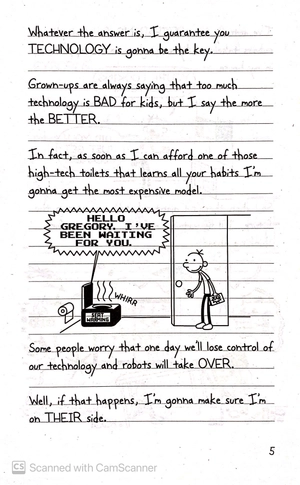 Whatever the answer is, I guarantee you
TECHNOLOGY is gonna be the key.
Grown-ups are always saying that too much
technology is BAD for kids, but I say the more
the BETTER.
In fact, as soon as I can afford one of those
high-tech toilets that learns all your habits I'm
gonna get the most expensive model.
HELLO
GREGORY. I'VE
BEEN WAITING
FOR YOU.
WHIRR
SEAT
WARMING
Some people worry that one day we'll lose control of
our technology and robots will take OVER.
Well, if that happens, I'm gonna make sure I'm
on THEIR side.
5
CS Scanned with CamScanner